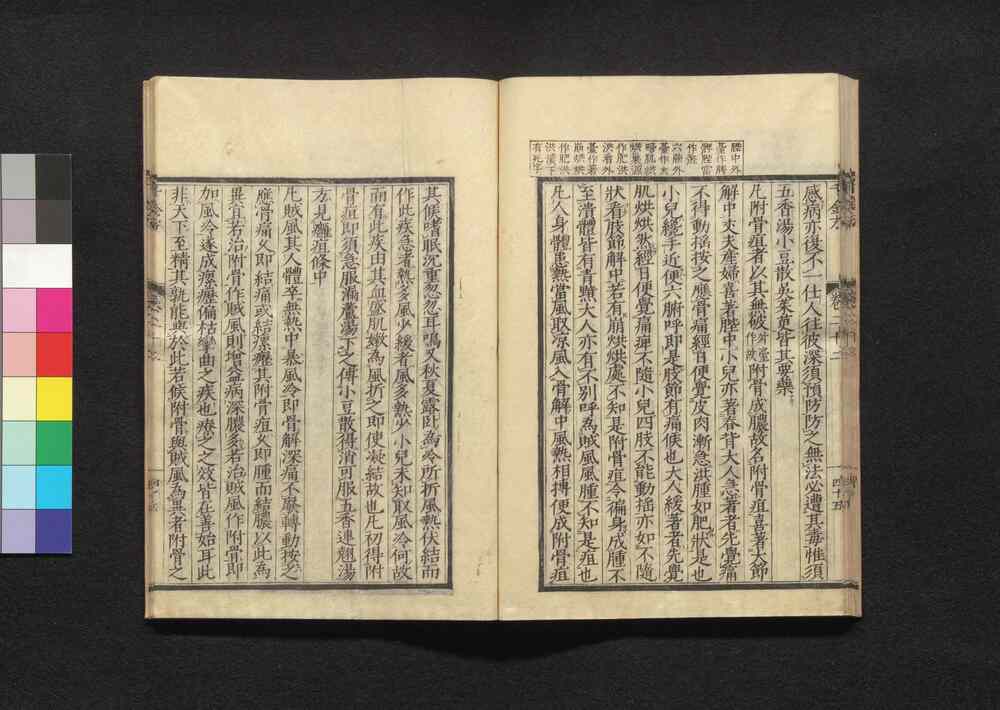 髀中外
臺作髀
髀脛當
作脛
六腑外
臺作大
腑肌烘
烘集源
作肥洪
洪看外
臺作著
崩烘烘
作肥洪
洪潰下
有孔字
感病亦復不一仕人往彼深須預防防之無法必遭其毒惟須
五香湯小豆散吳茱萸皆其要藥
凡附骨疽者以其無破附骨成膿故名附骨疽喜著大節
解中丈夫產婦喜著髀中小兒亦著脊背大人急著者先覺痛
不得動搖按之應骨痛經日便覺皮肉漸急洪腫如肥狀是也
小兒纔手近便六腑呼即是肢節有痛候也大人緩著者先覺
肌烘烘然經日便覺痛痺不隨小兒四肢不能動搖亦如不隨
狀看肢節解中若有崩烘烘處不知是附骨疽令徧身成腫不
至潰體皆有青黯大人亦有不別呼為賊風風腫不知是疽也
凡人身體患熱當風取涼風入骨解中風熱相搏便成附骨疽
其候嗜眠沉重忽忽耳鳴又秋夏露臥為冷所折風熱伏結而
作此疾急者熱多風少緩者風多熱少小兒未知取風冷何故
而有此疾由其血盛肌嫩為風折之即使凝結故也凡初得附
骨疽即須急服漏蘆湯下之傅小豆散得消可服五香連翹湯
方見癰疽條中
凡賊風其人體卒無熱中暴風冷即骨解深痛不敢轉動按之
應骨痛久即結痛或結瘰癧其附骨疽久即腫而結膿以此為
異宜若治附骨作賊風則增益病深膿多若治賊風作附骨即
加風冷遂成瘰癧偏枯攣曲之疾也療之之效皆在善始耳此
非天下至精其孰能與於此若候附骨與賊風為異者附骨之